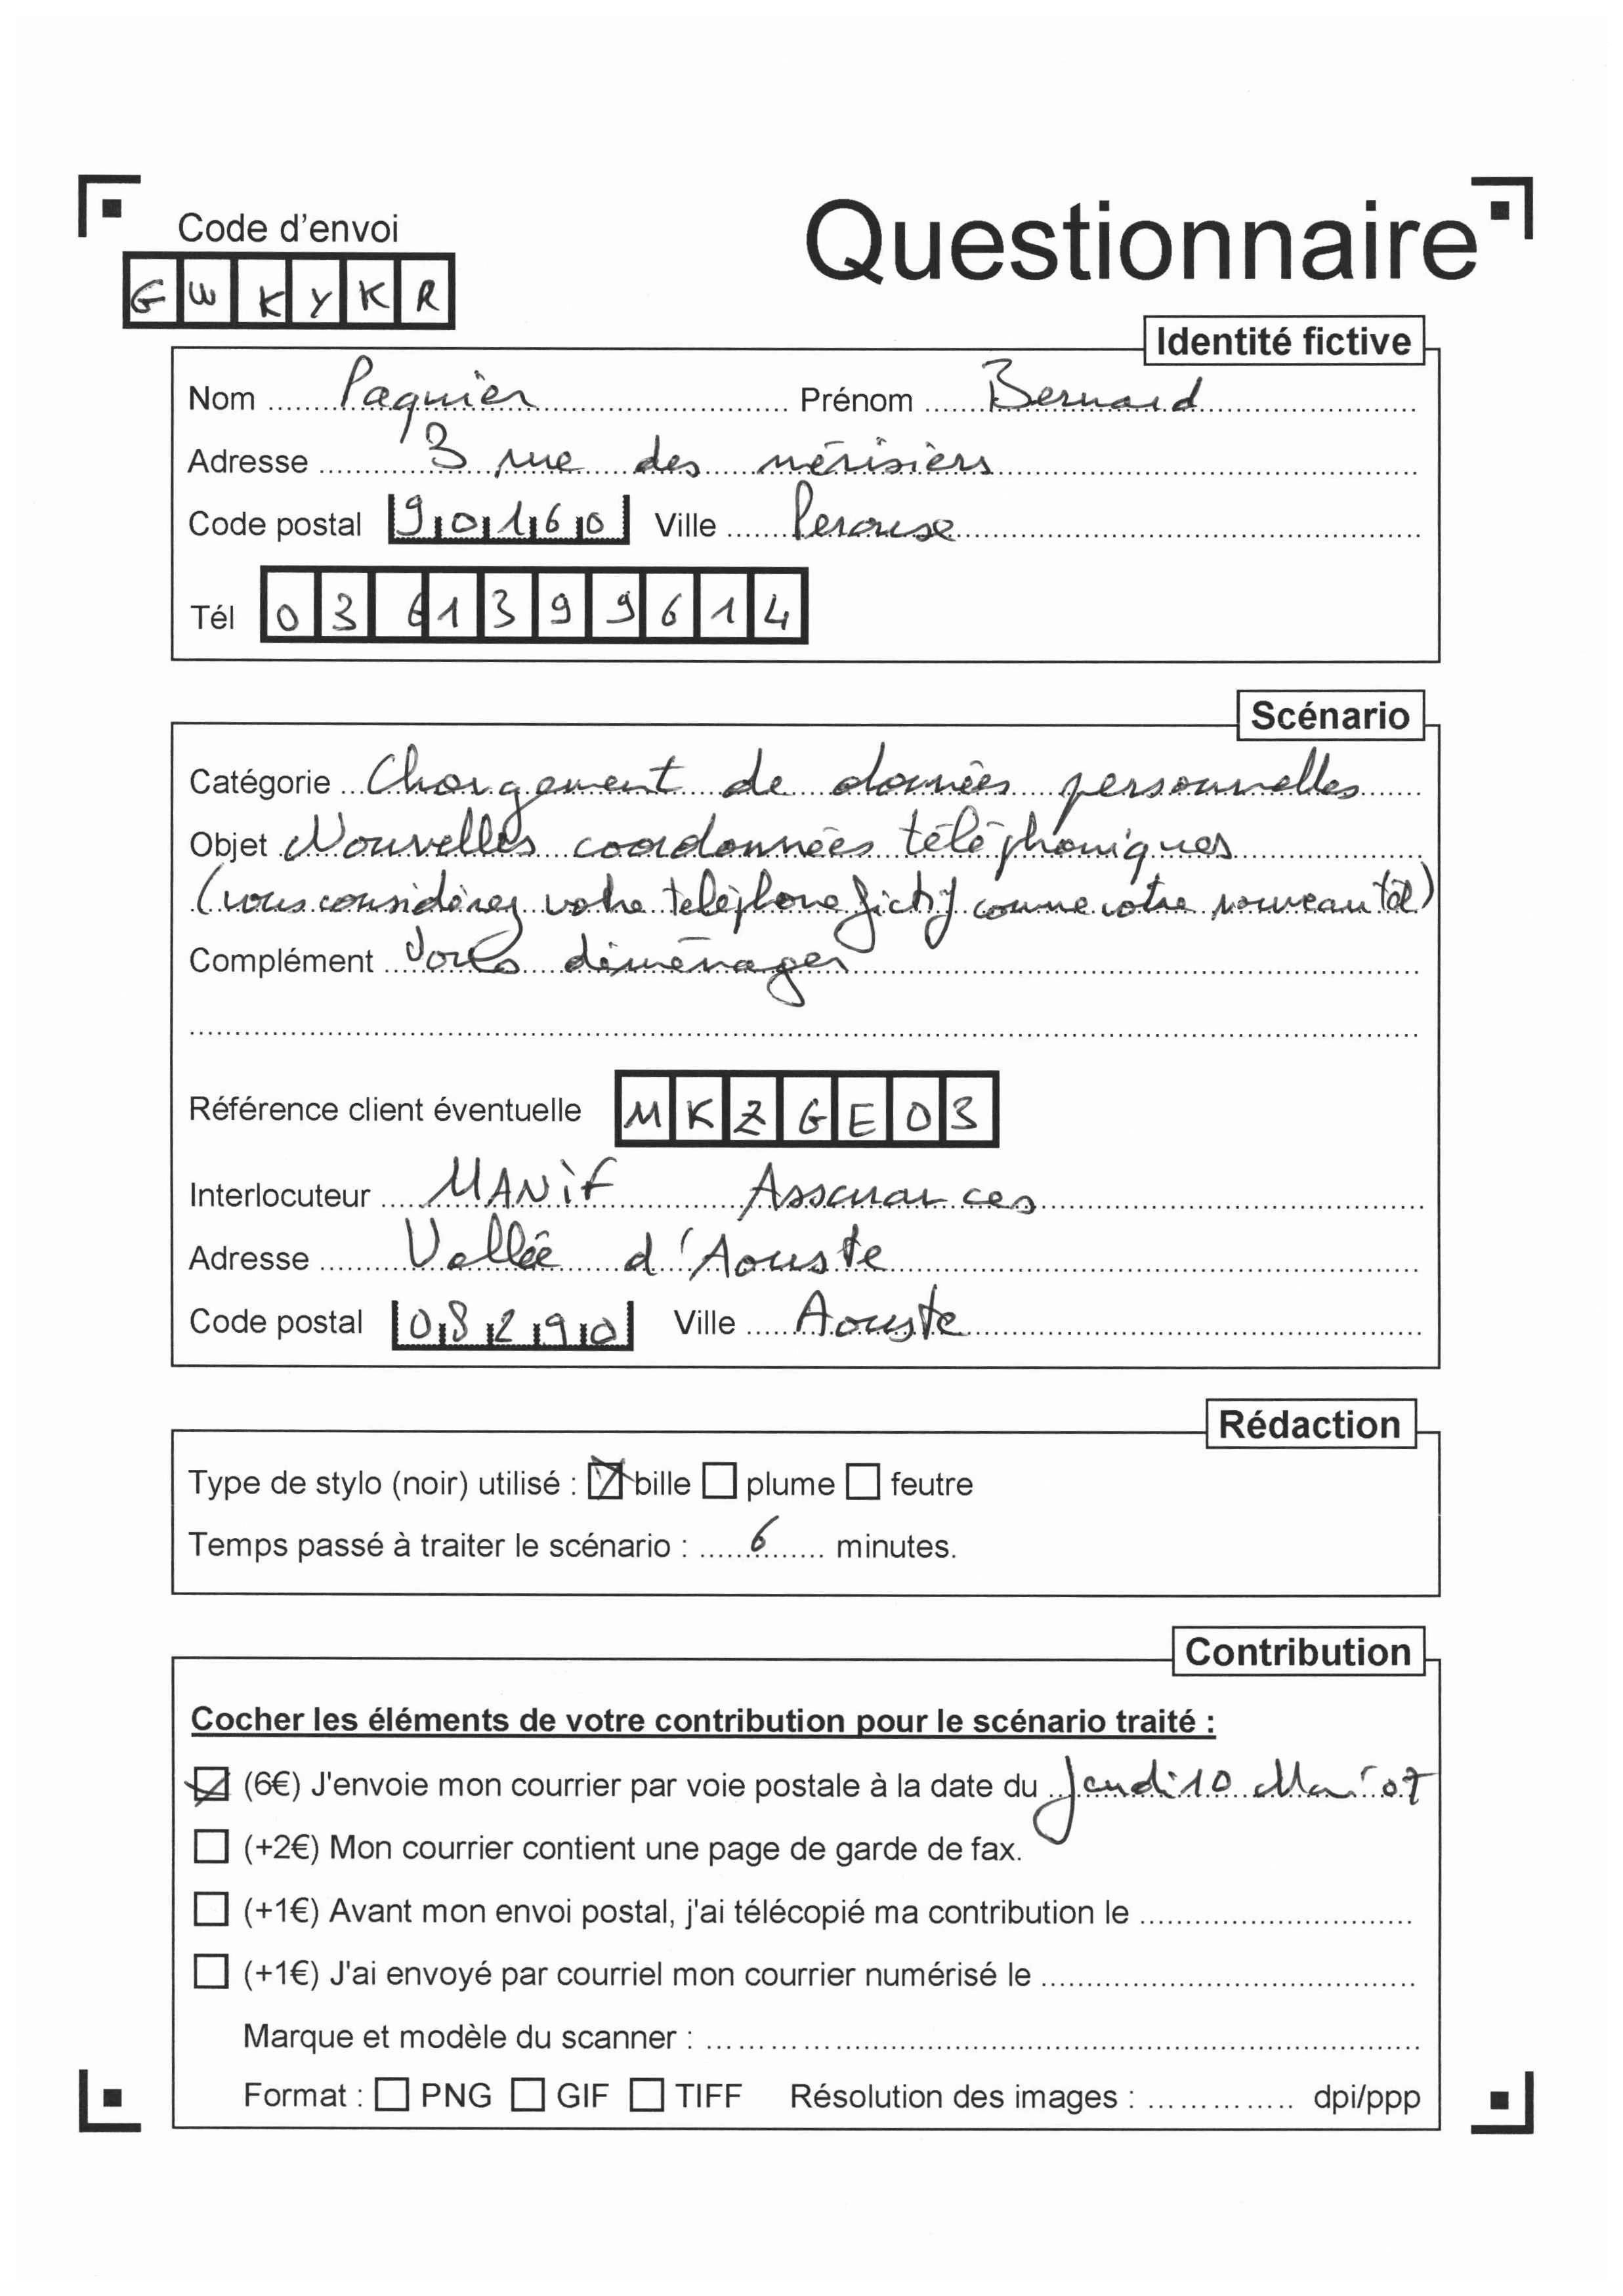 Code d'envoi
Questionnaire
G W K Y K R
Identité fictive
Nom Paquier Prénom Bernard
Adresse 3 rue des mérisiers
Code postal 90160 Ville Perouse
Tél 0361399614
Scénario
Catégorie Chargement de données personnelles
Objet Nouvelles coordonnées téléphoniques
(vous considérez votre téléphone fictif comme votre nouveau tél)
Complément Vous déménager
Référence client éventuelle MKZGE03
Interlocuteur MANIF Assurances
Adresse Vallée d'Aouste
Code postal 08290 Ville Aouste
Rédaction
Type de stylo (noir) utilisé : bille plume feutre
Temps passé à traiter le scénario : 6 minutes.
Contribution
Cocher les éléments de votre contribution pour le scénario traité :
(6€) J'envoie mon courrier par voie postale à la date du Jeudi 10 Mai 07
(+2€) Mon courrier contient une page de garde de fax.
(+1€) Avant mon envoi postal, j'ai télécopié ma contribution le
(+1€) J'ai envoyé par courriel mon courrier numérisé le
Marque et modèle du scanner :
Format : PNG GIF TIFF Résolution des images : dpi/ppp